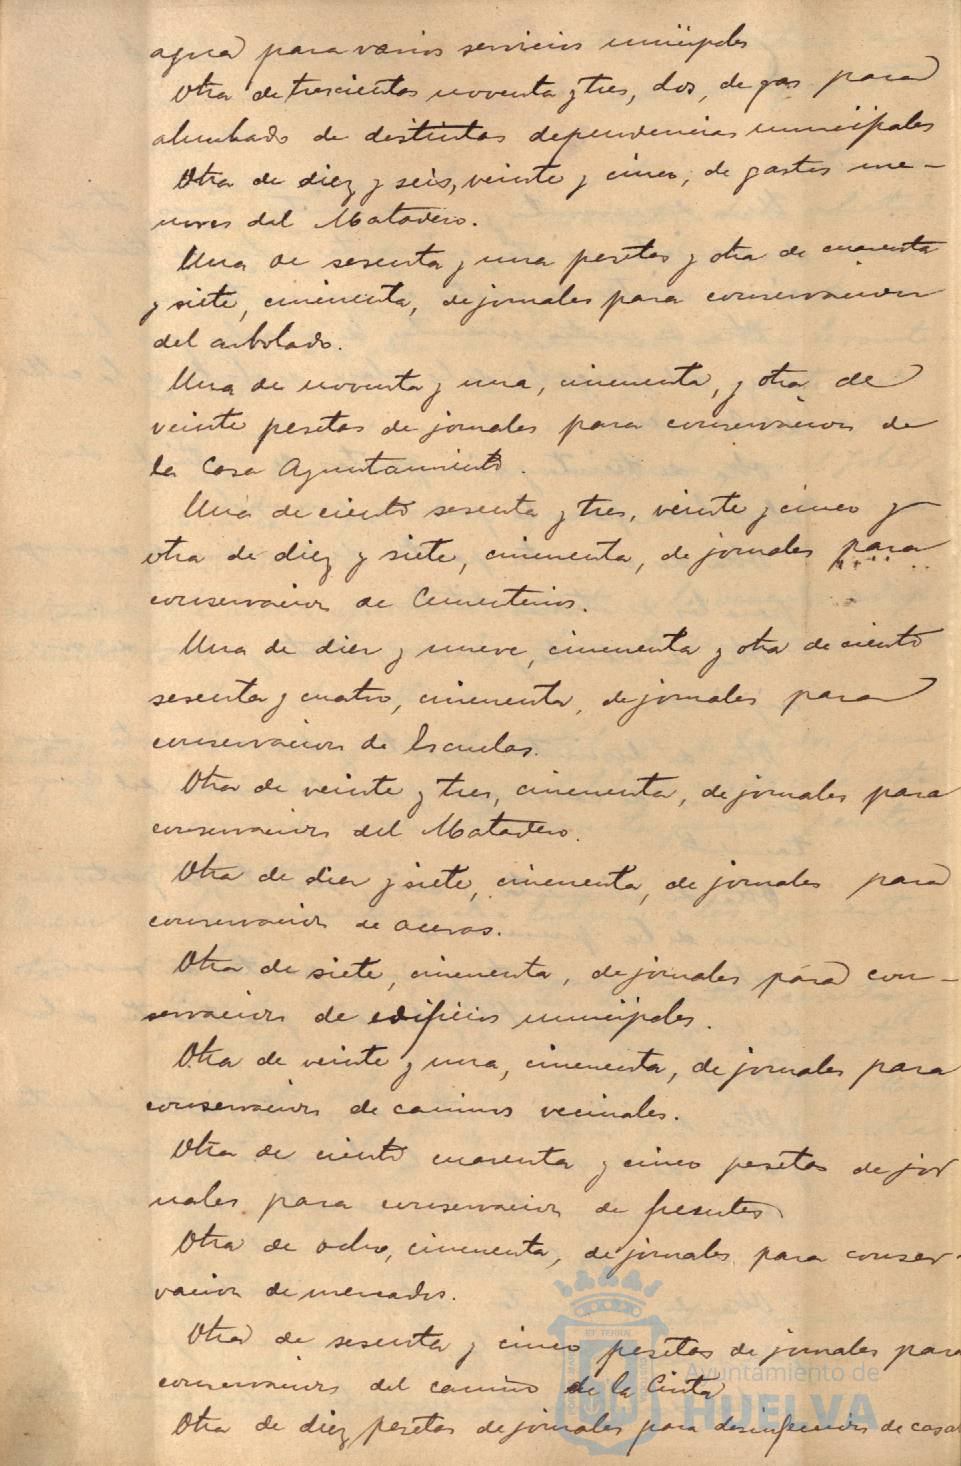 agua para varios servicios municipales
Otra de trescientas noventa y tres, dos, de gas para
alumbrado de distintas dependencias municipales
Otra de diez y seis, veinte y cinco, de gastos me-
nores del Matadero.
Una de sesenta y una pesetas y otra de cuarenta
y siete, cincuenta, de jornales para conservacion
del arbolado.
Una de noventa y una, cincuenta, y otra de
veinte pesetas de jornales para conservacion de
la Casa Ayuntamiento.
Una de ciento sesenta y tres, veinte y cinco y
otra de diez y siete, cincuenta, de jornales para
conservacion de Cementerios.
Una de diez y nueve, cincuenta y otra de ciento
sesenta y cuatro, cincuenta, de jornales para
conservacion de Escuelas.
Otra de veinte y tres, cincuenta, de jornales para
conservacion del Matadero.
Otra de diez y siete, cincuenta, de jornales para
conservacion de aceras.
Otra de siete, cincuenta, de jornales para con-
servacion de edificios municipales.
Otra de veinte y una, cincuenta, de jornales para
conservacion de caminos vecinales.
Otra de ciento cuarenta y cinco pesetas de jor
nales para conservacion de fuentes
Otra de ocho, cincuenta, de jornales para conser-
vacion de mercados.
Otra de sesenta y cinco pesetas de jornales para
conservacion del camino de la Cinta
Otra de diez pesetas de jornales para desinfeccion de casas
Ayuntamiento de
HUELVA